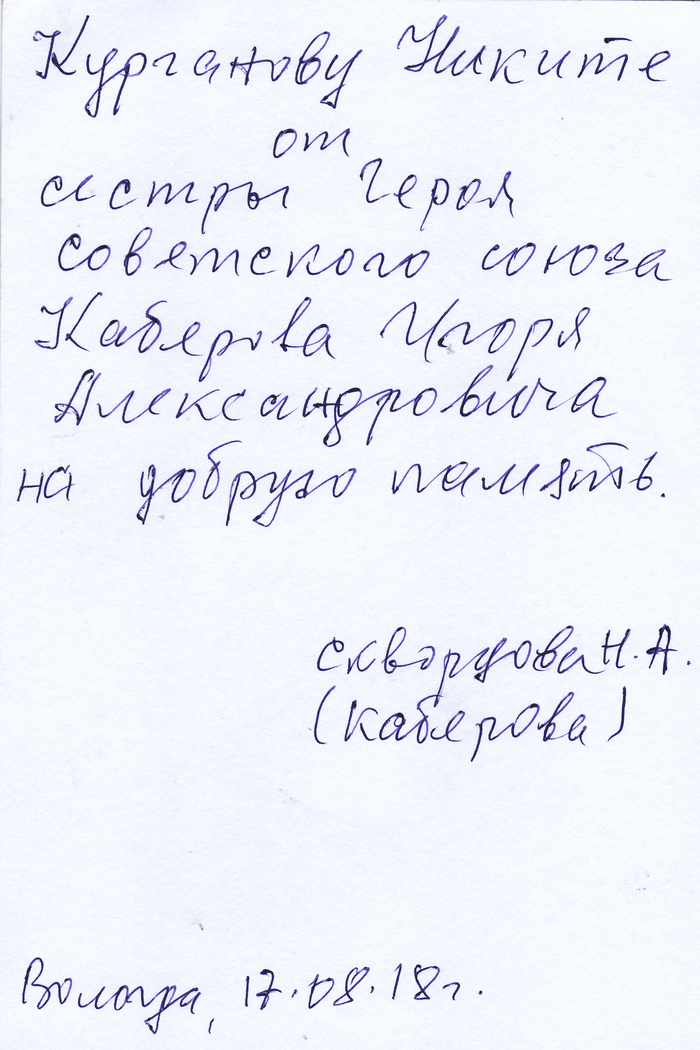 Курганову Никите
от
сестры Героя
Советского союза
Каберова Игоря
Александровича
на добрую память.
Скворцова Н. А.
(Каберова)
Вологда, 17.08.18г.